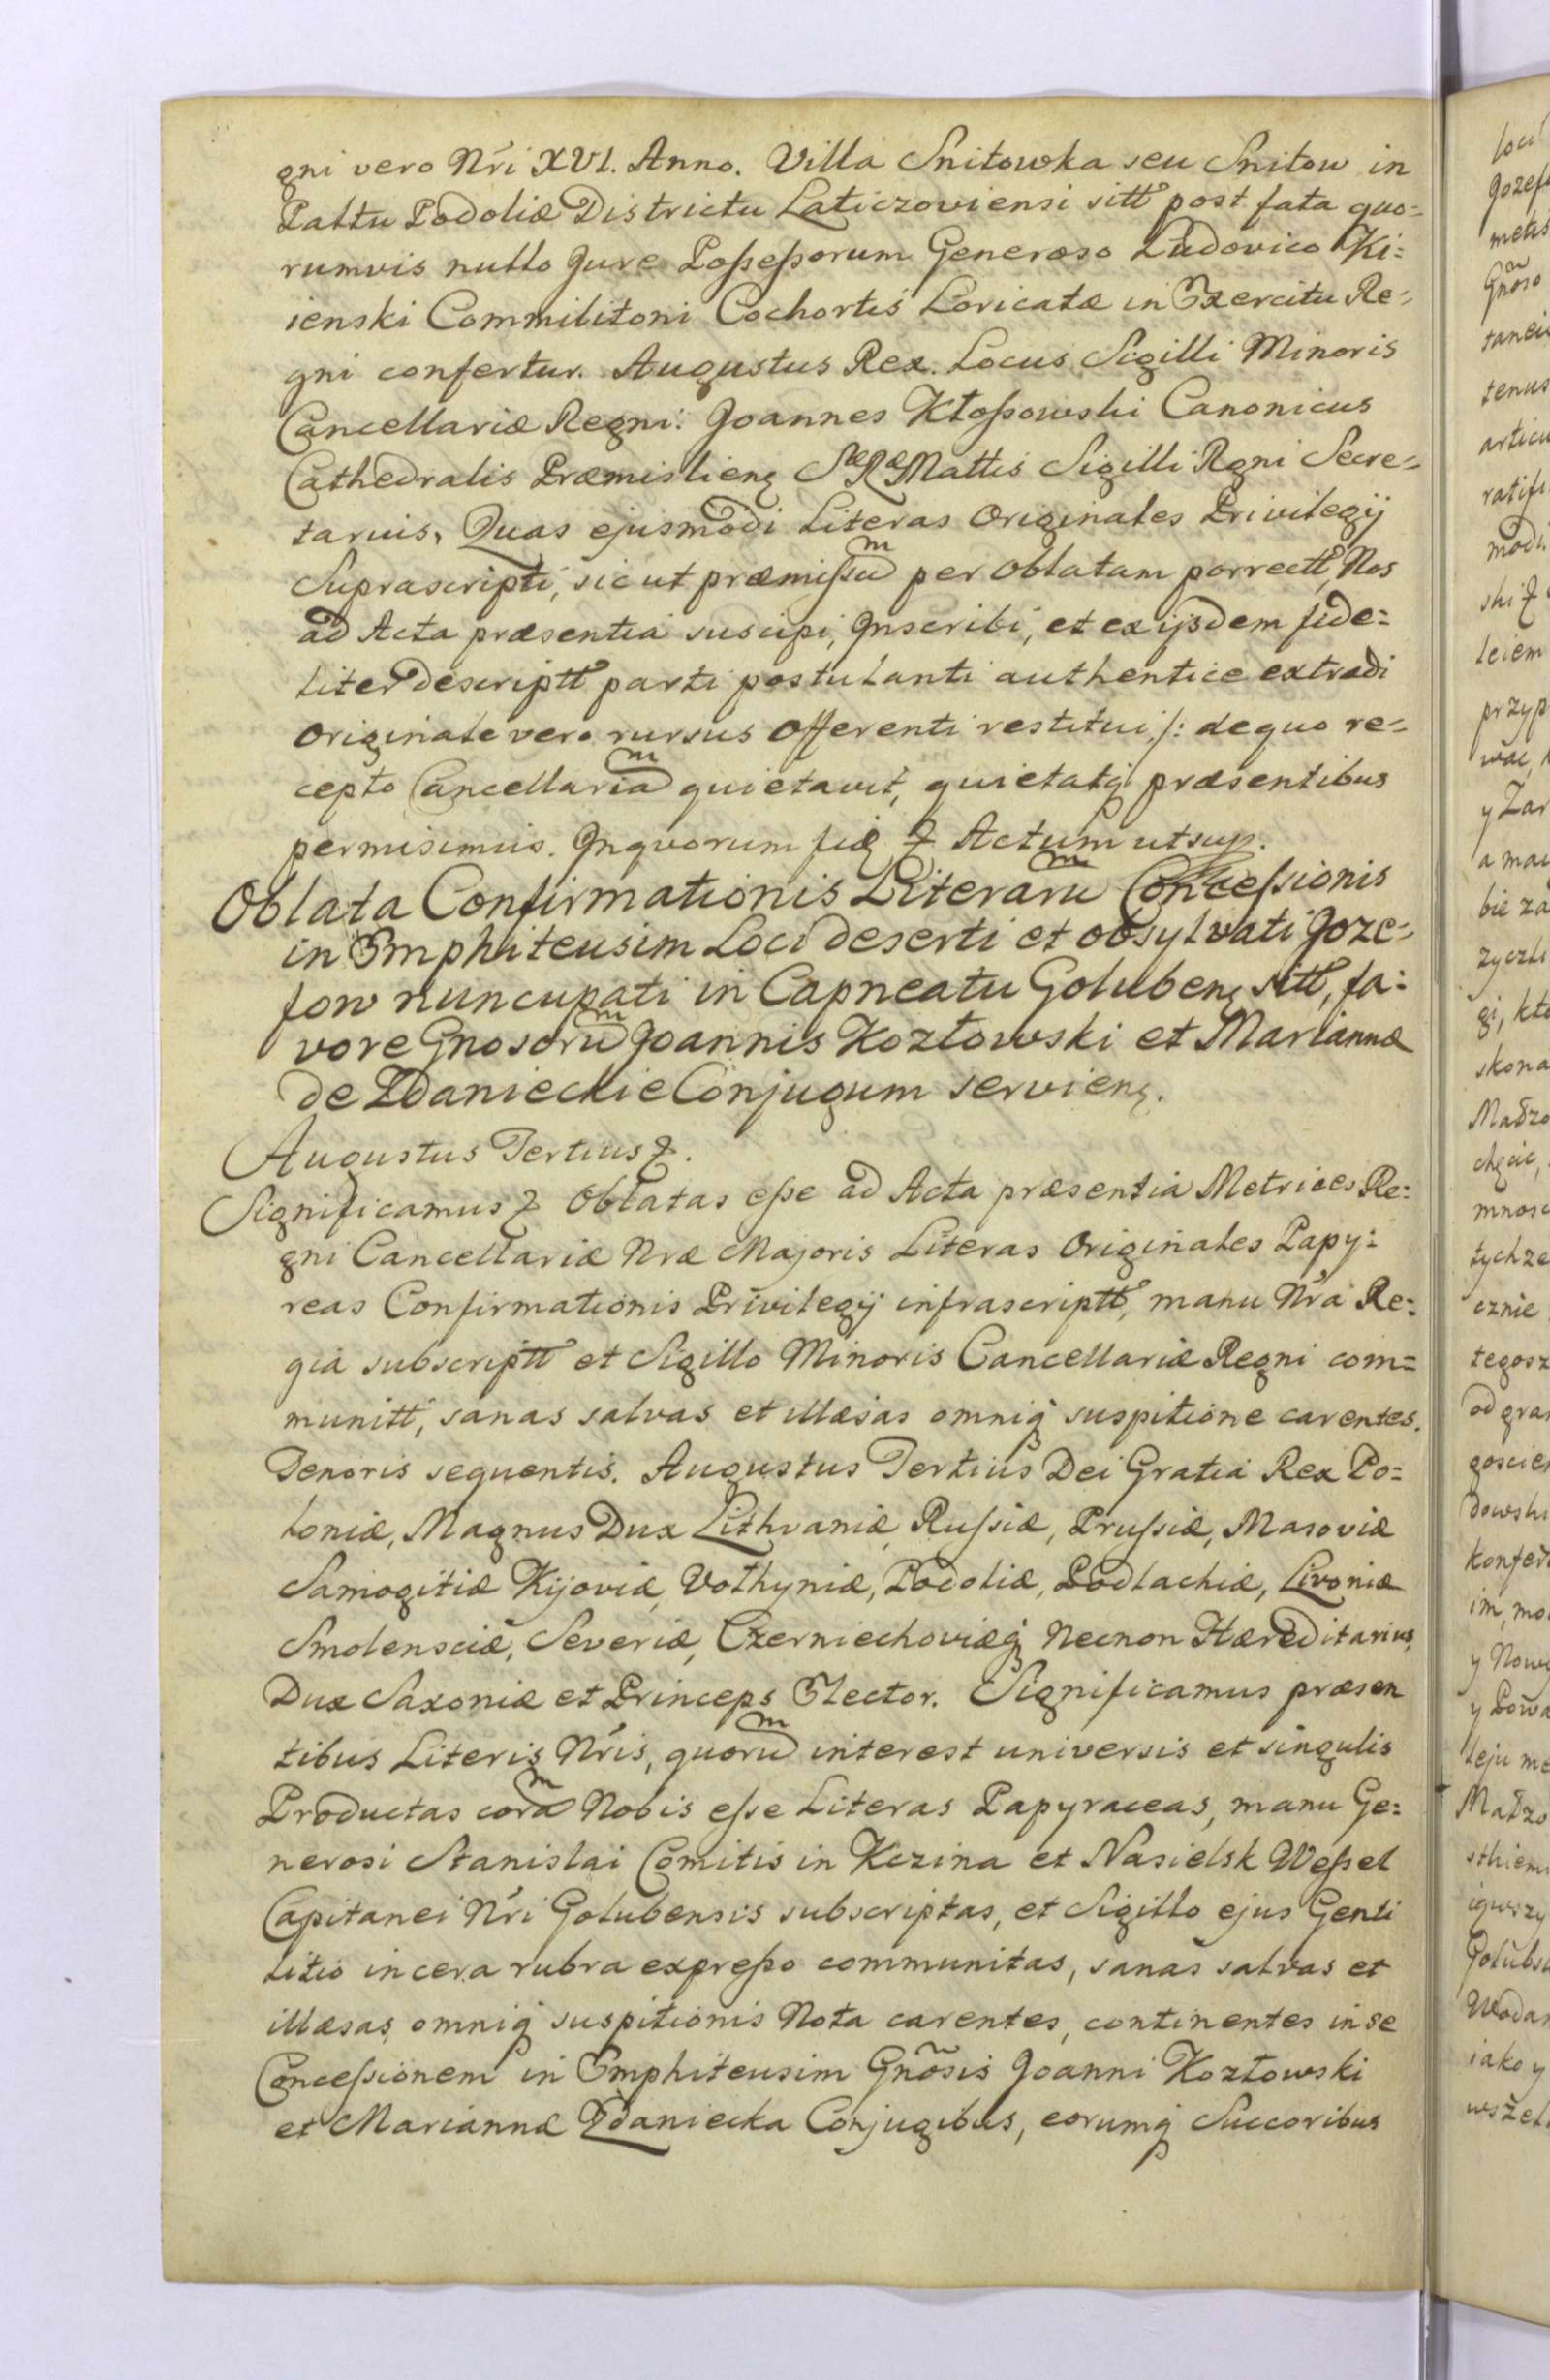 gni vero Nr̃i XVI. Anno. Villa Snitowka seu Snitow in
Palltu Podoliæ Districtu Laticzoviensi sitt post fata quo=
rumvis nullo Jure Poſseſsorum Generoso Ludovico Ki=
ienski Commilitoni Cochortis Loricatæ in Exercitu Re=
gni confertur. Augustus Rex. Locus Sigilli Minoris
Cancellariæ Regni: Joannes Kłoſsowski Canonicus
Cathedralis Præmislienς Sæ Ræ Mattis Sigilli Rgni Secre=
tarius. Quas ejusmodi Literas Originales Privilegij
Suprascripti, sicut præmiſsum per oblatam porrectt, Nos
ad Acta præsentia suscipi, Inscribi, et ex ijsdem fide=
liter descriptt parti postulanti authentice extradi
Originale vero rursus Offerenti restitui /: de quo re=
cepto Cancellariam quietavit, quietatq præsentibus
permisimus. In quorum fidς & Actum ut sup.
Oblata Confirmationis Literarum Conceſsionis
in Emphiteusim Loci deserti et obsylvati Joze=
fow nuncupati in Capneatu Golubenς sitt, fa=
vore Gnosorum Joannis Kozłowski et Mariannæ
de Zdanieckie Conjugum servienς.
Augustus Tertius &.
Significamus & Oblatas eſse ad Acta præsentia Metrices Re=
gni Cancellariæ Nræ Majoris Literas Originales Papy=
reas Confirmationis Privilegij infrascriptt, manu Nr̃a Re=
gia subscriptt et Sigillo Minoris Cancellariæ Regni com=
munitt, sanas salvas et illæsas omniq suspitione carentes.
Tenoris sequentis. Augustus Tertius Dei Gratia Rex Po=
loniæ, Magnus Dux Lithvaniæ, Ruſsiæ, Pruſsiæ, Masoviæ
Samogitiæ Kijoviæ, Volhyniæ, Podoliæ, Podlachiæ, Livoniæ
Smolensciæ, Severiæ, Czerniechoviæq Necnon Hæreditarius,
Dux Saxoniæ et Princeps Elector. Significamus præsen
tibus Literis Nr̃is, quorum interest universis et singulis
Productas coram Nobis eſse Literas Papyraceas, manu Ge=
nerosi Stanislai Comitis in Kczina et Nasielsk Weſsel
Capitanei Nr̃i Golubensis subscriptas, et Sigillo ejus Genti
litio in cera rubra expreſso communitas, sanas salvas et
illæsas, omniq suspitionis Nota carentes, continentes in se
Conceſsionem in Emphiteusim Gnõsis Joanni Kozłowski
et Mariannæ Zdaniecka Conjugibus, eorumq Succoribus